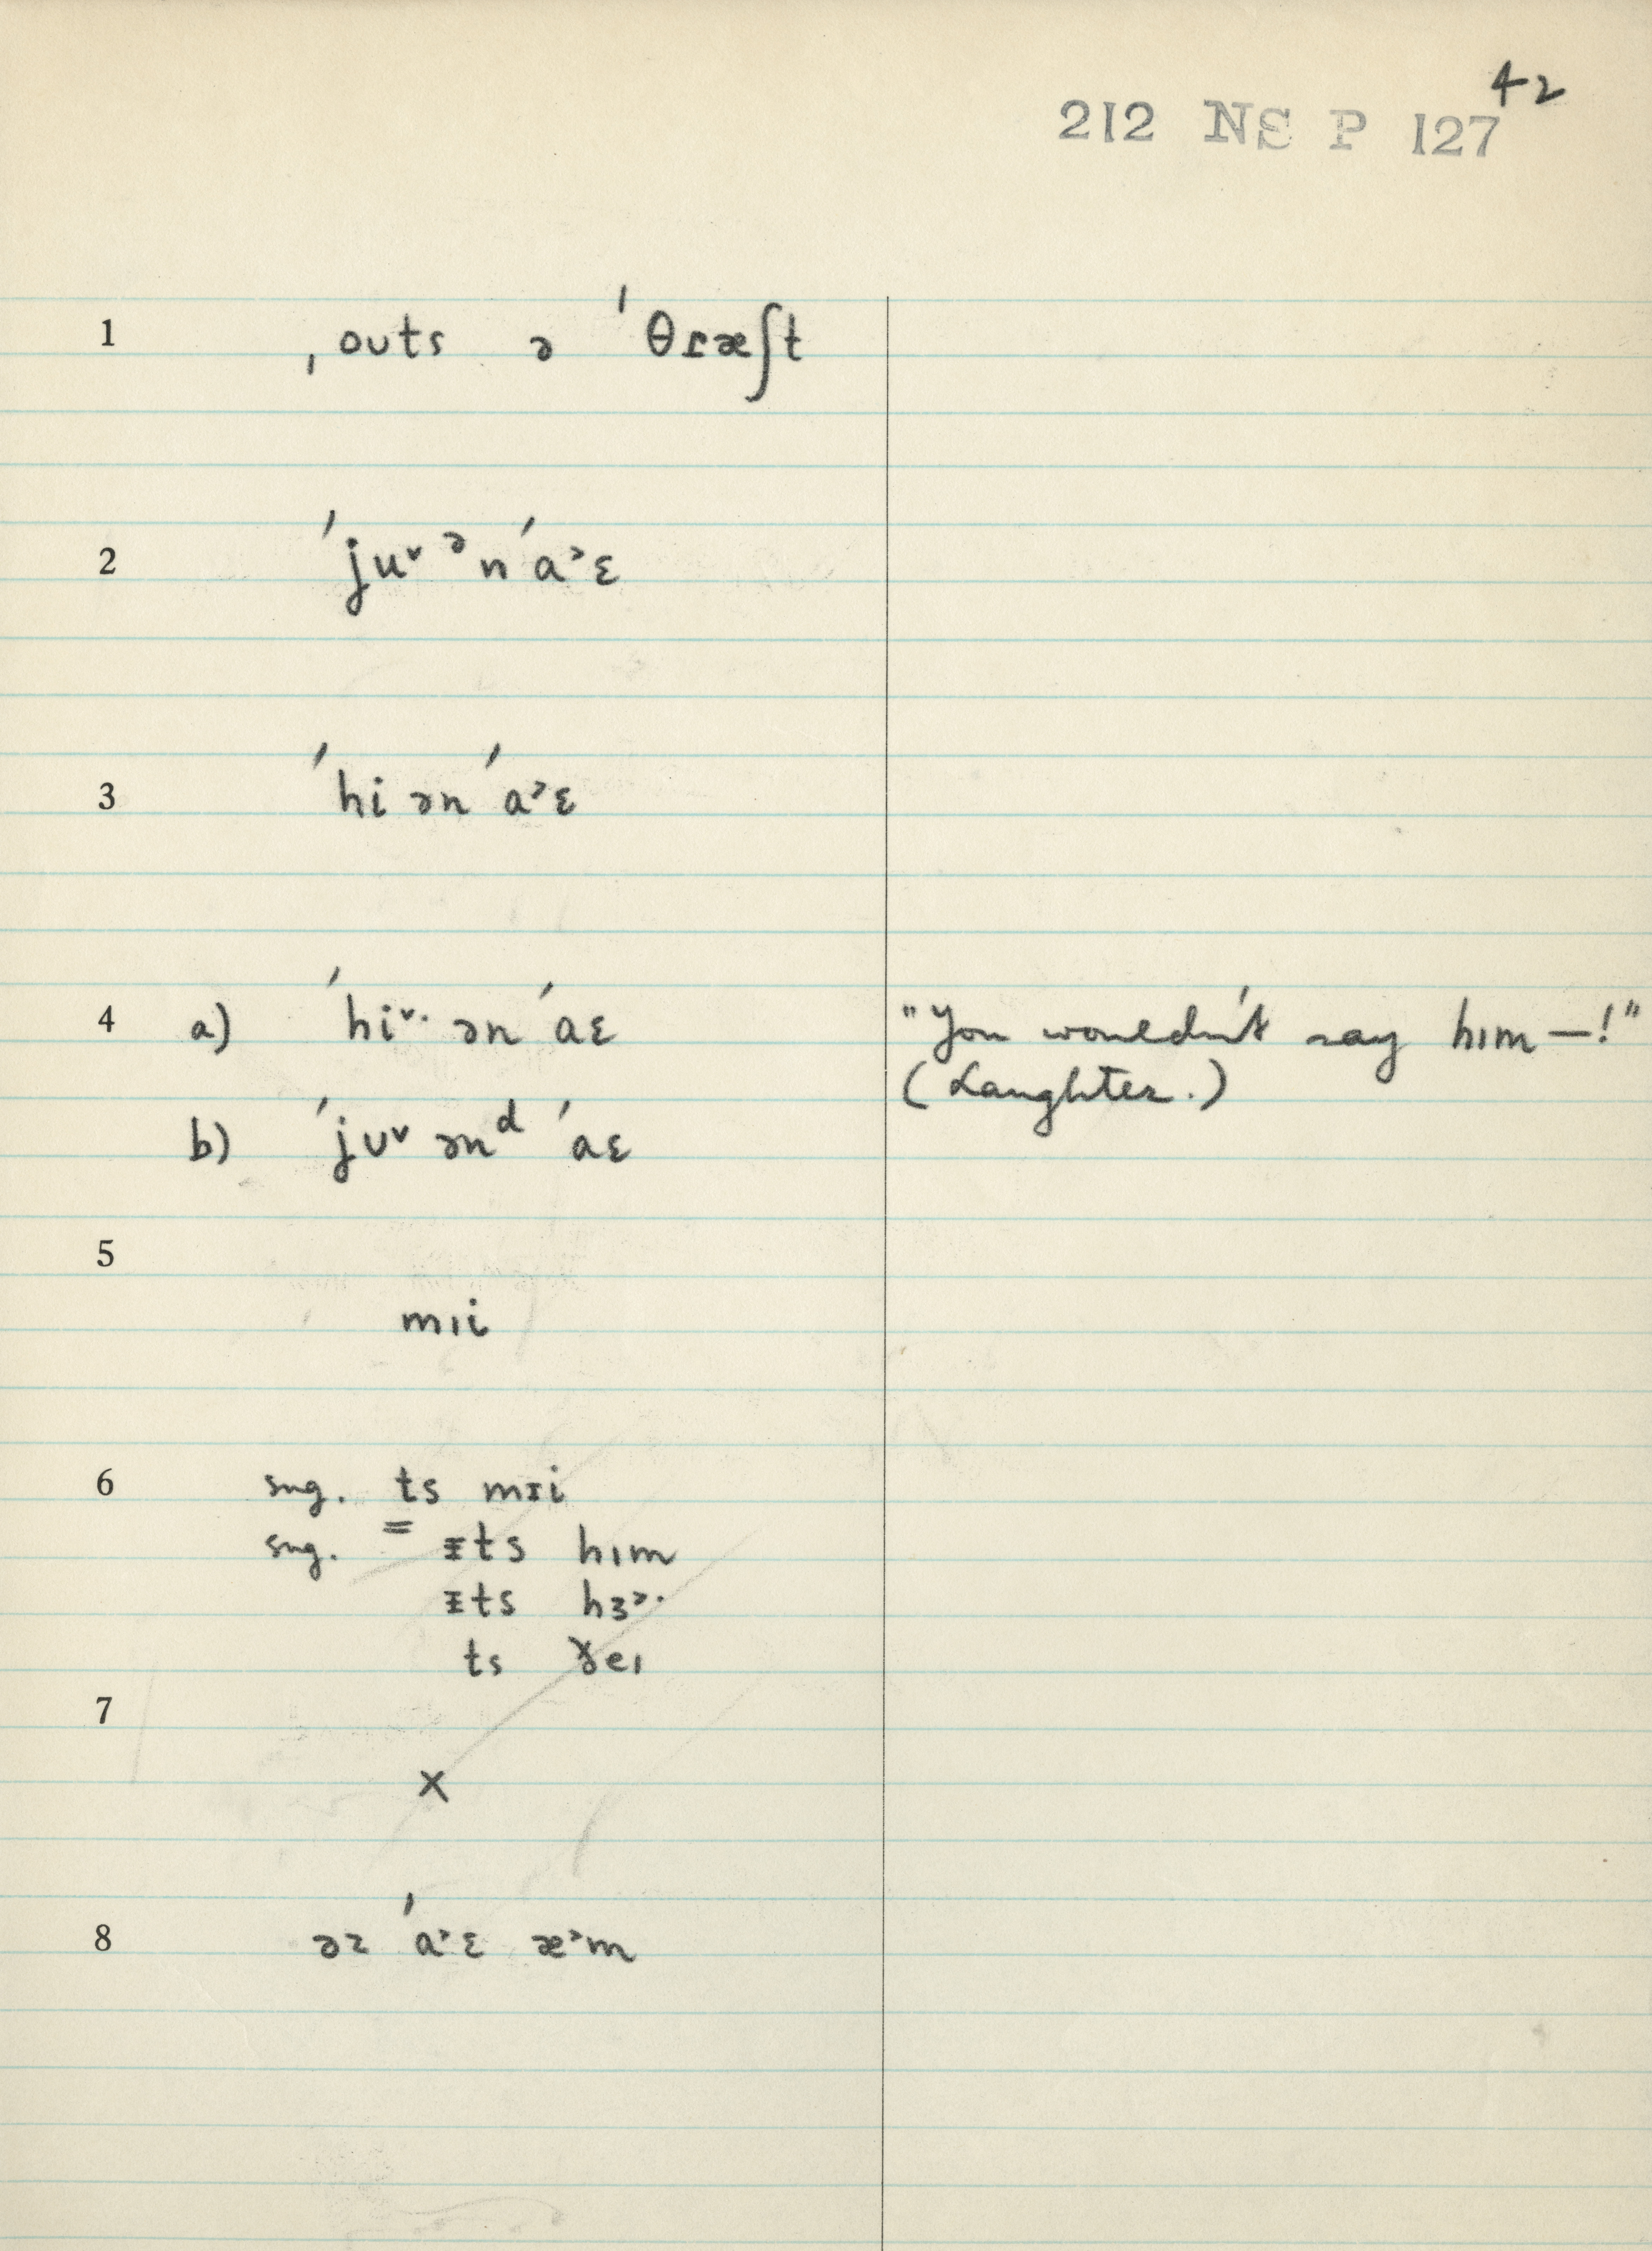 42
212 NS P 127
1 ˌouts ə ˈθɾæʃt
2 ˈju˅ ᵊnˈa˃ɛ
3 ˈhi ən ˈa˃ɛ
4 a) ˈhi˅· ən ˈaɛ "You wouldn't say hɪm—!"
(Laughter.)
b) ˈjʊ˅ ənᵈ ˈaɛ
5
mɪi
6 sug. ts mɪi
sug. = ᵻts hɪm
ᵻts hɜ˃·
ts ðeɪ
7
×
8 əz ˈa˃ɛ æ˃m